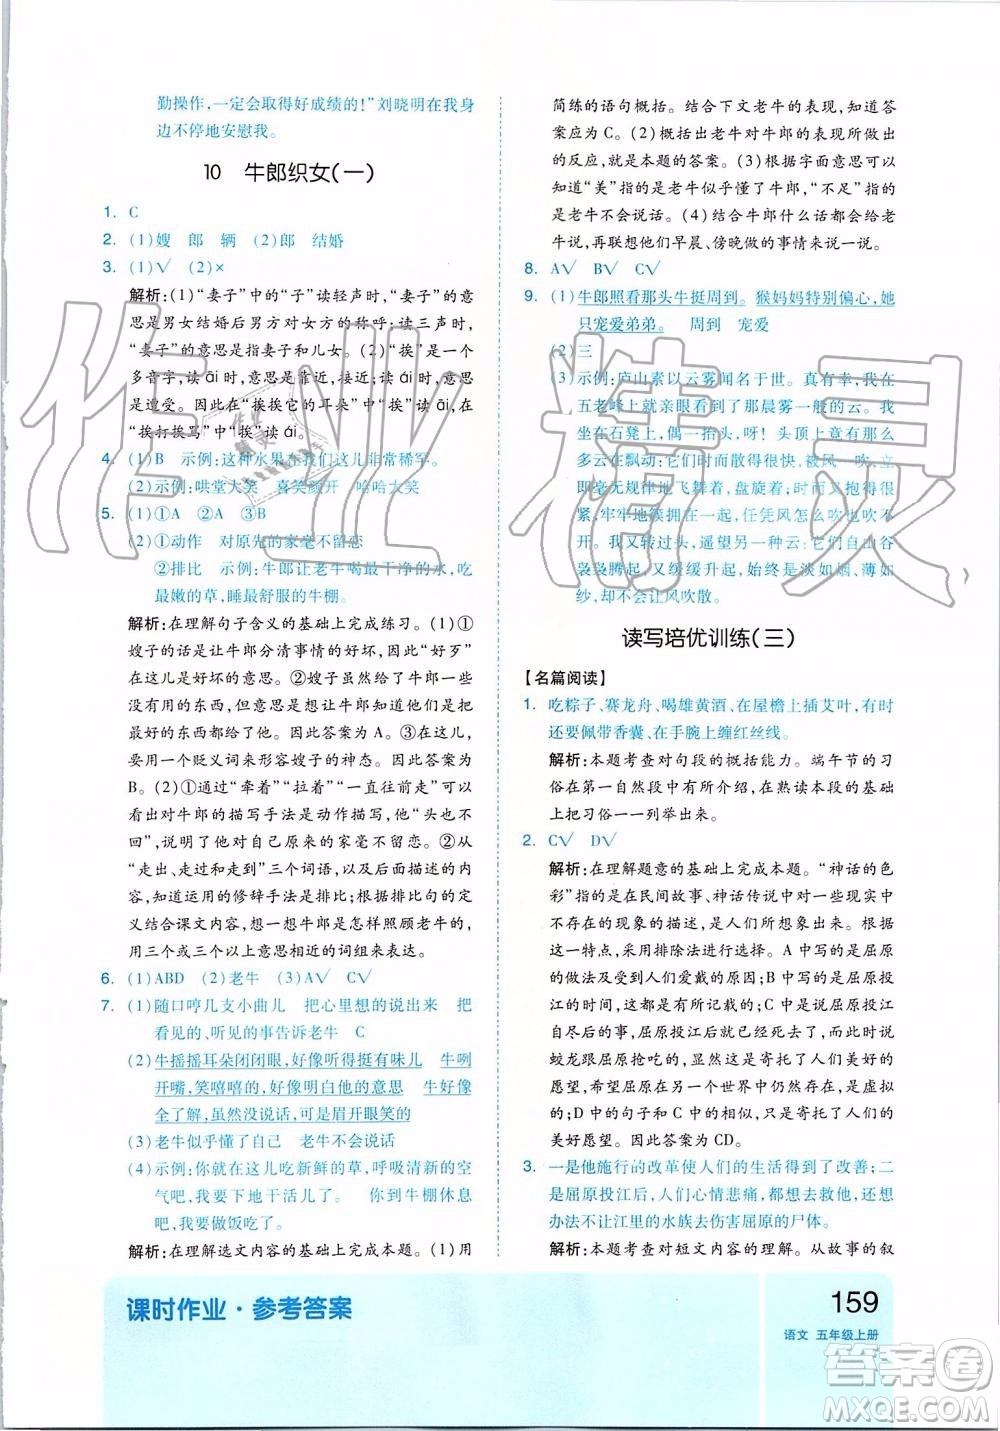 勤操作,一定会取得好成绩的!”刘晓明在我身
边不停地安慰我。
10 牛郎织女(一)
1. C
2. (1)嫂 郎 辆 (2)郎 结婚
3. (1)√ (2)×
解析:(1)“妻子”中的“子”读轻声时,“妻子”的意
思是男女结婚后男方对女方的称呼;读三声时,
“妻子”的意思是妻子和儿女。(2)“挨”是一个
多音字,读 āi 时,意思是靠近,接近;读 ái 时,意思
是遭受。因此在“挨挨它的耳朵”中“挨”读 āi,在
“挨打挨骂”中“挨”读 ái。
4. (1)B 示例:这种水果在我们这儿非常稀罕。
(2)示例:哄堂大笑 喜笑颜开 哈哈大笑
5. (1)①A ②A ③B
(2)①动作 对原先的家毫不留恋
②排比 示例:牛郎让老牛喝最干净的水,吃
最嫩的草,睡最舒服的牛棚。
解析:在理解句子含义的基础上完成练习。(1)①
嫂子的话是让牛郎分清事情的好坏,因此“好歹”
在这儿是好坏的意思。②嫂子是让牛郎不要拿没
有用的东西,但是在嫂子眼里,没有用的东西却是
最好的东西,因此答案为 A。③嫂子平时总是骂牛
郎,现在却非常亲热,说明她是假装的,文章中需
要用一个贬义词来形容嫂子的神态。因此答案为
B。(2)①通过“牵着”“拉着”“一直往前走”可以
看出对牛郎的描写手法是动作描写,“头也不
回”,说明了他对自己原来的家毫不留恋。②从
“走出、走过和走到”三个词语,以及前后句子内
容,知道运用的修辞手法是排比;根据排比句的定
义结合课文内容,想一想牛郎是怎样照顾老牛的,
用三个或三个以上意思相近的词组来表达。
6. (1)ABD (2)老牛 (3)A√ C√
7. (1)随口哼几支小曲儿 把心里想的说出来 把
看见的、听见的事告诉老牛 C
(2)牛摇摇耳朵闭闭眼,好像听得挺有味儿 牛咧
开嘴,笑嘻嘻的,好像明白他的意思 牛好像
全了解,虽然没说话,可是眉开眼笑的
(3)老牛似乎懂了自己 老牛不会说话
(4)示例:你就在这儿吃新鲜的草,呼吸清新的空
气吧,我要下地干活儿了。 你到牛棚休息
吧,我要做饭吃了。
解析:在理解选文内容的基础上完成本题。(1)用
简练的语句概括。结合下文老牛的表现,知道答
案应为 C。(2)概括出老牛对牛郎的所作所做出
的反应,就是本题的答案。(3)根据字面意思可以
知道“美”指的是老牛似乎懂了牛郎,“不足”指的
是老牛不会说话。(4)结合牛郎什么话都会给老
牛说,再结合他们早晨、傍晚做的事情来说一说。
8. A√ B√ C√
9. (1)牛郎照看那头牛挺周到。猴妈妈特别偏心,她
只宠爱弟弟。 周到 宠爱
(2)三
(3)示例:庐山素以云雾闻名于世。真有幸,我在
五老峰上就亲眼看到了那晨雾一般的云。我
坐在石凳上,偶一抬头,好家伙!头顶上有许
多云在飘动;有时散得很开,被风一吹,散
的毫无规律地飞舞着,盘旋着;有时又聚得很
紧,牢牢地簇拥着,任凭风怎么吹也吹不开。
我又转过头,遥望另一种云:它们从山谷
袅袅腾起,又缓缓升起,始终是淡如烟、薄如
纱,却不会让风吹散。
读写培优训练(三)
【名篇阅读】
1. 吃粽子、赛龙舟、喝雄黄酒、在屋檐上插艾叶,有时
还要佩带香囊、在手腕上缠红丝线。
解析:本题考查对句段的概括能力。端午节的习
俗在第一自然段中有写,在熟读本段的基础上,
把习俗一一列举出来。
2. C√ D√
解析:在理解题意的基础上完成本题。“神话的色
彩”指的是在民间故事、神话传说中对于现实中
不存在的现象的描述,是人们想象出来的。根据
这一特点,采用排除法进行选择。A 中写的是屈原
的做法及人们爱戴的原因;B 中写的是屈原投
江的时间,有文字记载,是真实的;C 中写屈原投江
自尽后的事,屈原投江后就已经死亡,所以文中的
蛟龙跟屈原抢吃的,显然这是寄托了人们美好的
愿望,希望屈原在另一个世界中得以安息,是虚拟
的;D 中的句子和 C 中的相似,只是寄托了人们的
美好愿望。因此答案为 CD。
3. 一是他施行的改革使人们的生活得到了改善;二
是屈原投江后,人们心情悲痛,为了祭奠他,还想
办法不让江里的水族去伤害屈原的尸体。
解析:本题考查对短文内容的理解。从故事的叙
课时作业·参考答案
159
语文 五年级上册
作业精灵
答案圈
MXQE.COM